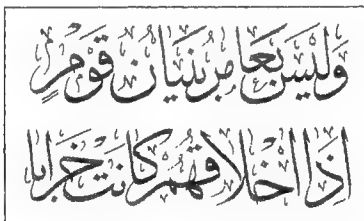 وَلَيْسَ بِعَامِرٍ بُنْيَانُ قَوْمٍ
إِذَا أَخْلَاقُهُمْ كَانَتْ خَرَابَا